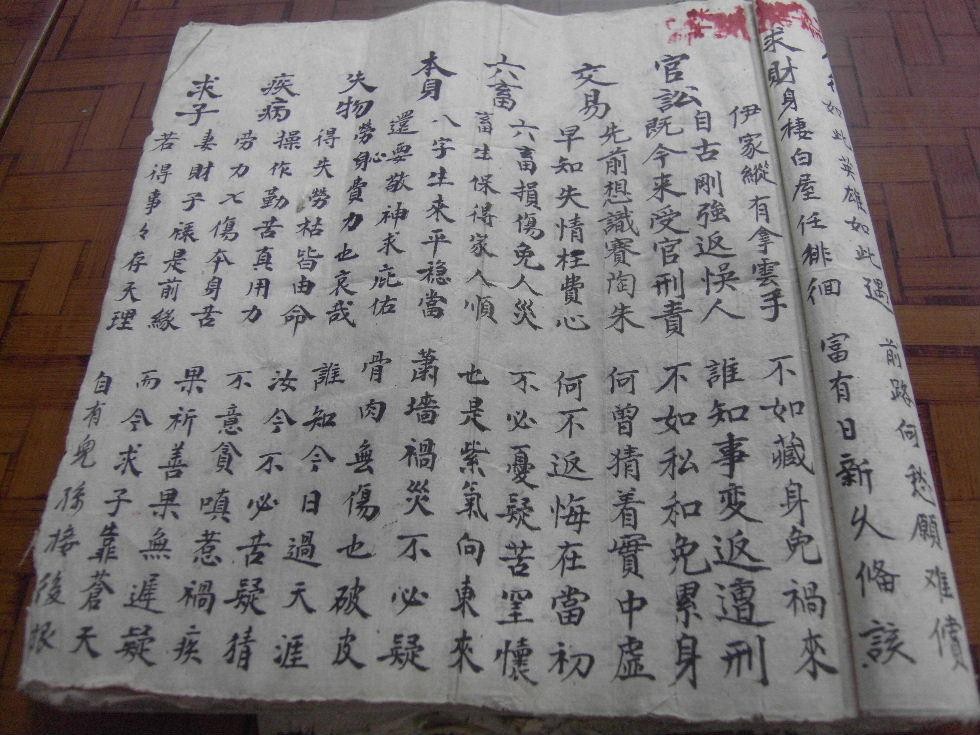 得如此英雄如此遇 前路何愁願难償
求財 身棲白屋任徘徊 富有日新久偹該
伊家縱有拿雲手 不如藏身免禍來
官訟 自古剛強返悞人 誰知事變返遭刑
既今來受官刑責 不如私和免累身
交易 先前想識賽陶朱 何曾猜着實中虛
早知失情枉費心 何不返悔在當初
六畜 六畜損傷免人災 不必憂疑苦罣懷
畜生保得家人順 也是紫氣向東來
本身 八字生來平穩當 蕭墻禍災不必疑
還要敬神求庇佑 骨肉無傷也破皮
失物 勞心身費力也哀哉 誰知今日過天涯
得失勞枯皆由命 汝今不必苦疑猜
疾病 操作勤苦真用力 不意貪嗔惹禍疾
勞力又傷本身苦 果祈善果無遲疑
求子 妻財子祿是前緣 而今求子靠蒼天
若得事々存天理 自有兒孫接後根